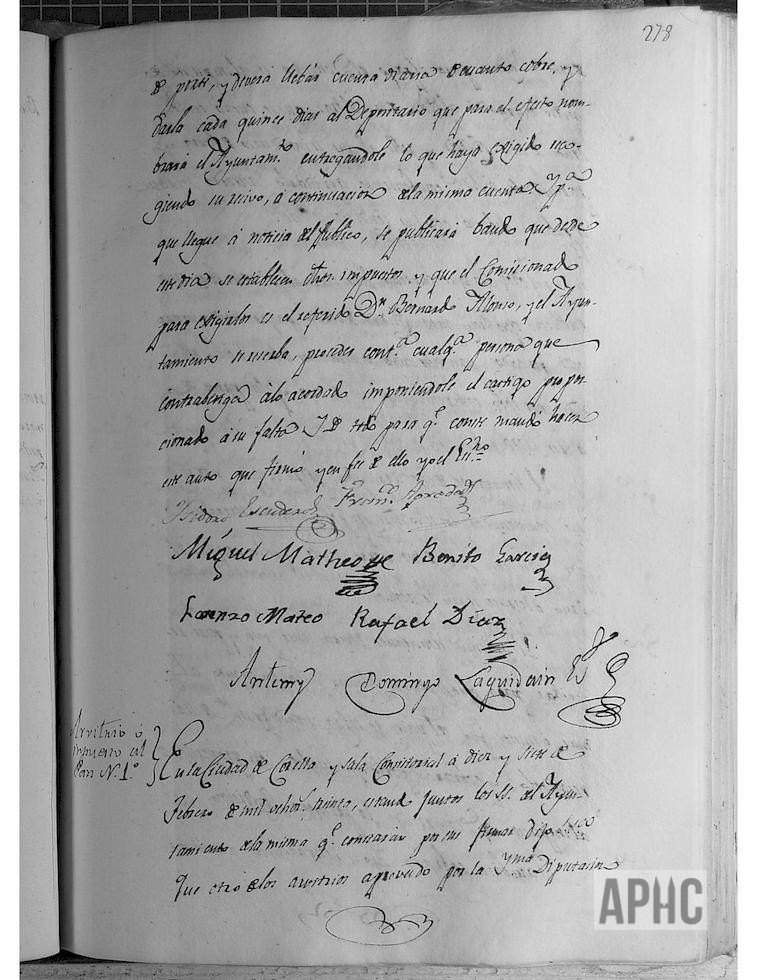 278
de por si, y deverá llebár cuenta diaria de cuanto cobre, y
darla cada quince dias al Depositario que para el efecto nom-
brará el Ayuntam.to entregandole lo que haya exigido reco-
giendo su recivo, á continuacion de la misma cuenta Y p.a
que llegue á noticia del Publico, se publicará bando que desde
este dia se establecen otros impuestos, y que el Comisionado
para exigirlos es el referido D.n Bernardo Alonso, y el Ayun-
tamiento se reserba, proceder cont.a cualq.a persona que
contrabenga á lo acordado imponiendole el castigo propor-
cionado á su falta Y de todo para q.e conste mandó hacer
este auto que firmó y en fee de ello yo el Es.no
Isidoro Escudero
Miguel Matheo Benito Garcia
Lorenzo Mateo Rafael Diaz
Antemy Domingo Laquidain Es.no
Arvitrio ó
impuesto
N.º 1.º
En la Ciudad de Corella y sala Consistorial á diez y siete de
Febrero de mil ochos.s treinta, estando juntos los SS. del Ayun-
tamiento de la misma q.e constarán por sus firmas dijo
Que otro de los arvitrios aprovado por la Yma Diputacion
APHC